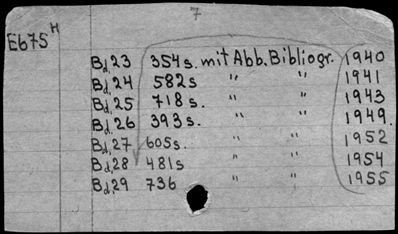 7
E675 H
Bd.23 354s. mit Abb. Bibliogr. 1940
Bd.24 582s " " 1941
Bd.25 718s. " " 1943
Bd.26 393s. " " 1949.
Bd.27 605s. " " 1952
Bd.28 481s " " 1954
Bd.29 736 " " 1955